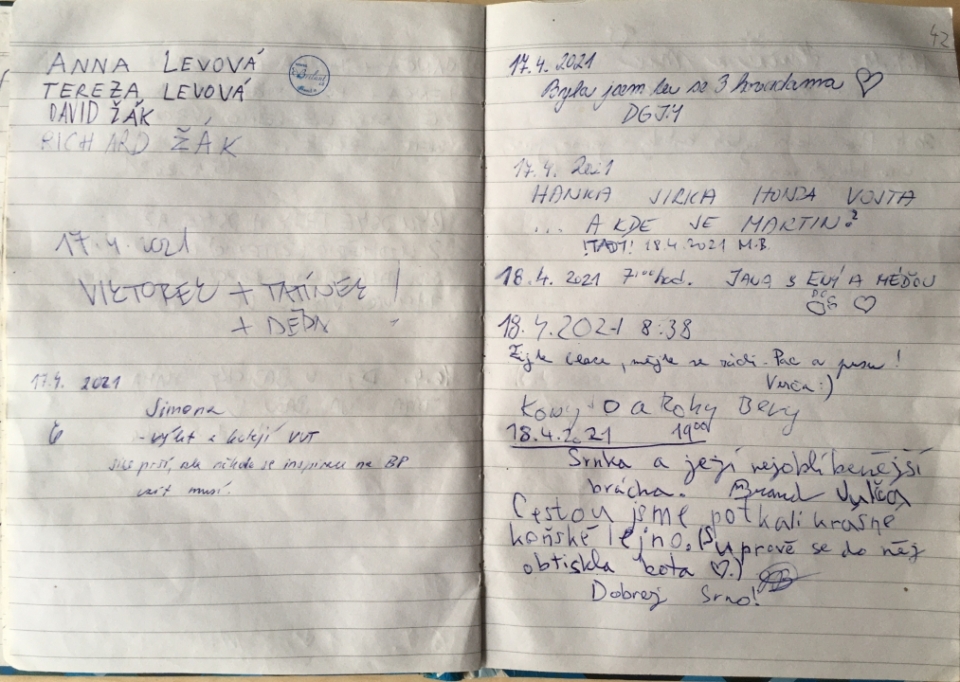 ANNA LEVOVÁ
TEREZA LEVOVÁ
DAVID ŽÁK
RICHARD ŽÁK
17.4.2021
VIKTOREK + TATÍNEK !
+ DĚDA
17.4. 2021
Simona
- výlet z kolejí VUT
sice prší, ale někde se inspirace na BP
vzít musí.
42
17.4.2021
Byla jsem tu se 3 ♡
DGJY
17.4. 2021
HANKA JIRKA HONZA VOJTA
... A KDE JE MARTIN?
!TADY! 18.4.2021 M.B.
18.4. 2021 7:00 hod. JANA S ENÝ A MÉĎOU
♡
18.4.2021 8:38
Žijte lásce, mějte se rádi. Pac a pusu!
Verča :)
a Roky Bery
18.4.2021 19⁰⁰
Srnka a její nejoblíbenější
brácha.
Cestou jsme potkali krásné
koňské lejno. (Suprově se do něj
obtiskla bota ♡.)
Dobrej Srno!